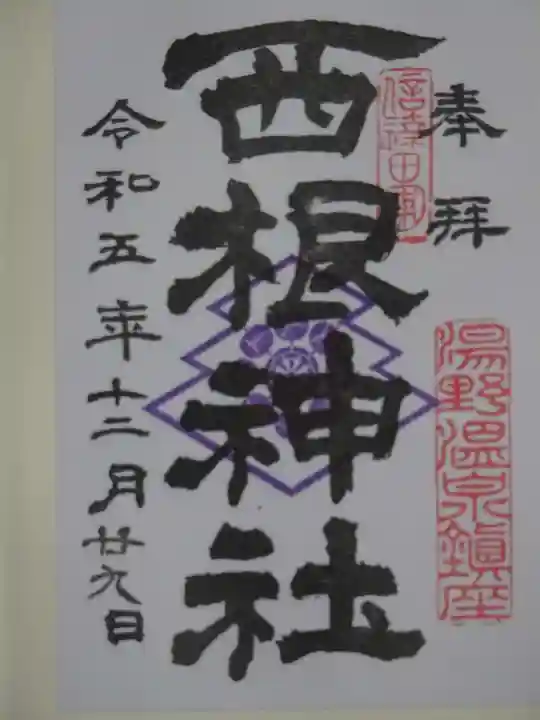 奉拝
湯野温泉鎮座
西根神社
令和五年十二月廿九日